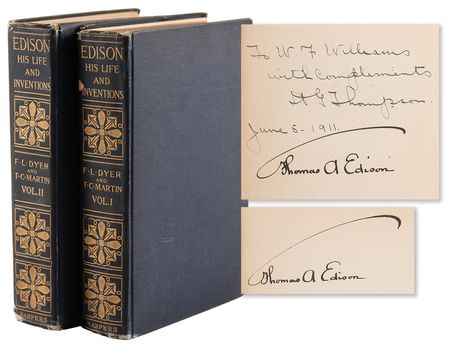 EDISON
HIS LIFE
AND
INVENTIONS
F·L·DYER
AND
T·C·MARTIN
VOL.II
HARPERS
EDISON
HIS LIFE
AND
INVENTIONS
F·L·DYER
AND
T·C·MARTIN
VOL.I
HARPERS
To W F Williams
with Compliments
A G Thompson.
June 5-1911.
Thomas A Edison
Thomas A Edison